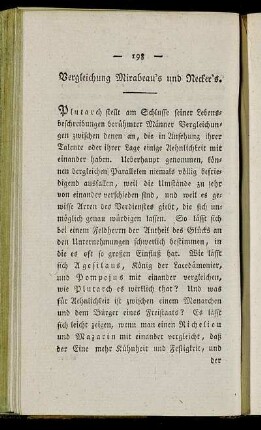 — 198 —
Vergleichung Mirabeau's und Necker's.
Plutarch stellt am Schlusse seiner Lebens-
beschreibungen berühmter Männer Vergleichun-
gen zwischen denen an, die in Ansehung ihrer
Talente oder ihrer Lage einige Aehnlichkeit mit
einander haben. Ueberhaupt genommen, kön-
nen dergleichen Parallelen niemals völlig befrie-
digend ausfallen, weil die Umstände zu sehr
von einander verschieden sind, und weil es ge-
wisse Arten des Verdienstes giebt, die sich un-
möglich genau würdigen lassen. So läßt sich
bei einem Feldherrn der Antheil des Glücks an
den Unternehmungen schwerlich bestimmen, in
die es oft so großen Einfluß hat. Wie läßt
sich Agesilaus, König der Lacedämonier,
und Pompejus mit einander vergleichen,
wie Plutarch es wirklich thut? Und was
für Aehnlichkeit ist zwischen einem Monarchen
und dem Bürger eines Freistaats? Es läßt
sich leicht zeigen, wenn man einen Richelieu
und Mazarin mit einander vergleicht, daß
der Eine mehr Kühnheit und Festigkeit, und
der